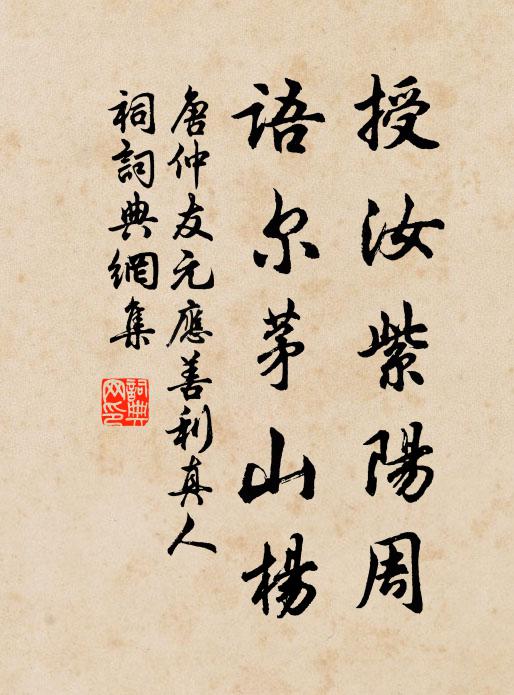 授汝紫陽周
語尔茅山楊
唐仲友元應善利真人
祠詞典網集
詞典網印